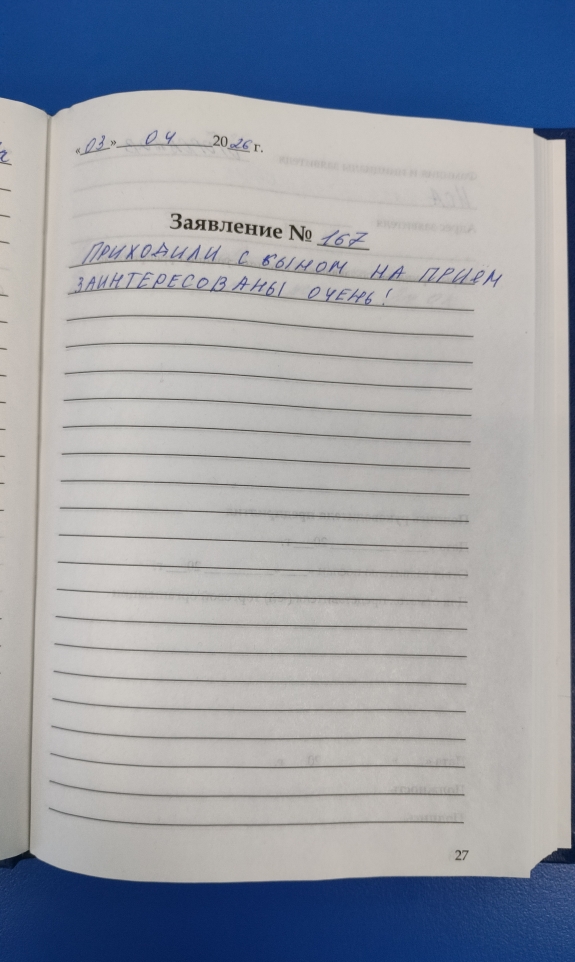 «03» 04 2026 г.
Заявление № 167
ПРИХОДИЛИ С СЫНОМ НА ПРИЁМ
ЗАИНТЕРЕСОВАНЫ ОЧЕНЬ!
27